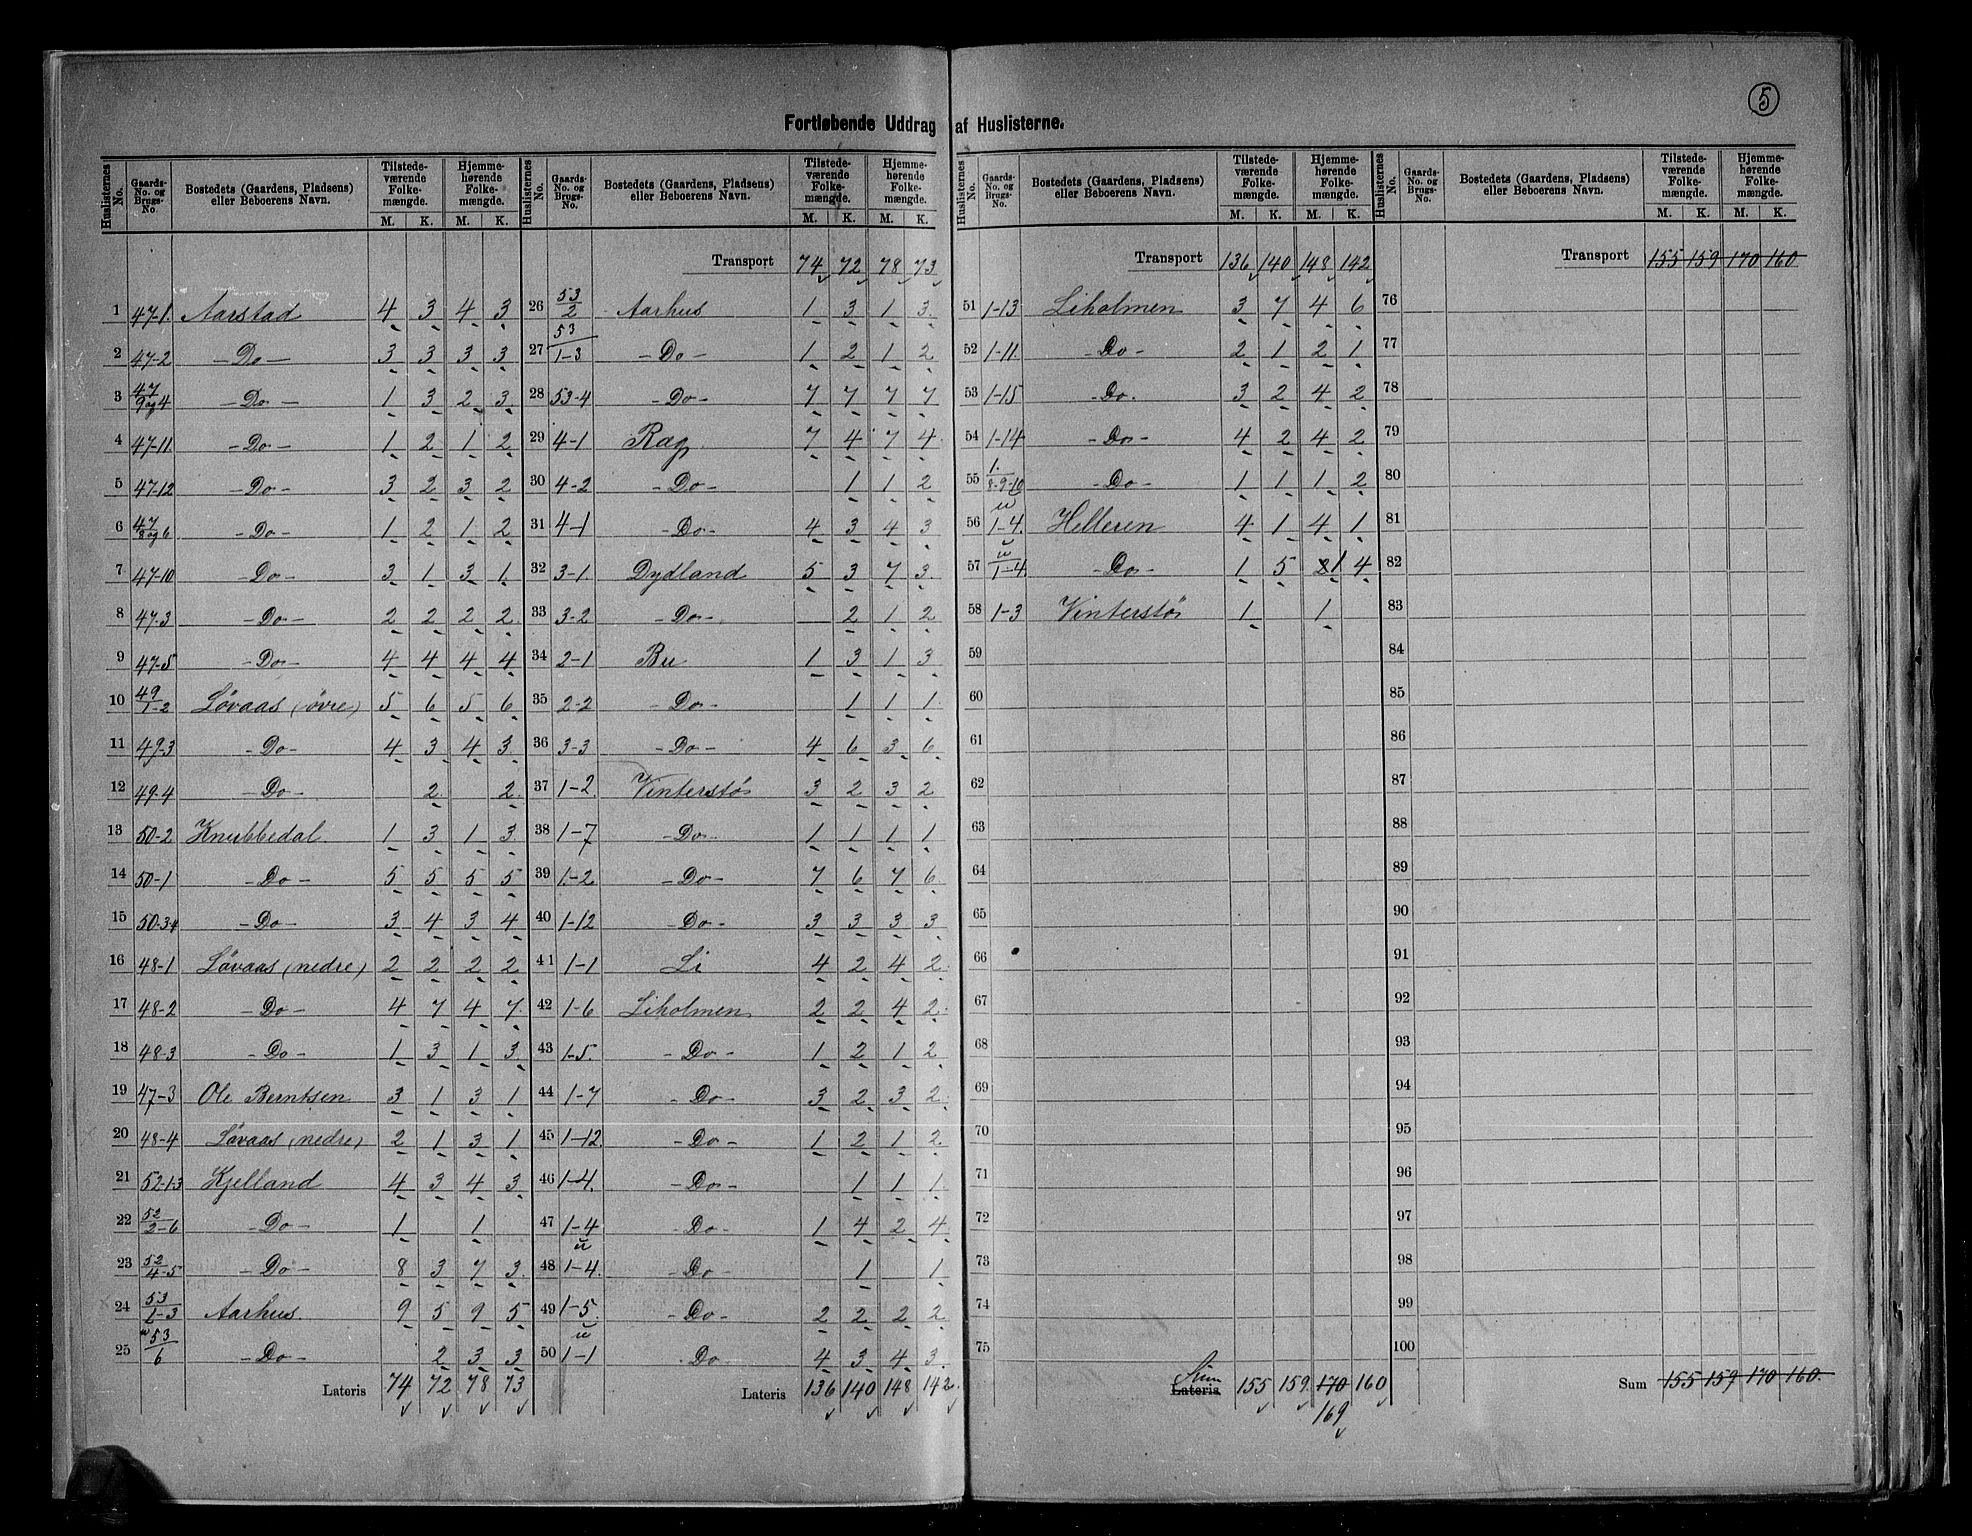 5
Fortløbende Uddrag af Huslisterne.
Huslisternes No. | Gaards-No. og Brugs-No. | Bostedets (Gaardens, Pladsens) eller Beboerens Navn. | Tilstedeværende Folkemængde. M. K. | Hjemmehørende Folkemængde. M. K.
1 47-1. Aarstad 4 3 4 3
2 47-2 -Do- 3 3 3 3
3 47/9 og 4 -Do- 1 3 2 3
4 47-11. -Do- 1 2 1 2
5 47-12 -Do- 3 2 3 2
6 47/8 og 6 -Do- 1 2 1 2
7 47-10 -Do- 3 1 3 1
8 47-3 -Do- 2 2 2 2
9 47-5 -Do- 4 4 4 4
10 49/1-2 Løvaas (øvre) 5 6 5 6
11 49-3 -Do- 4 3 4 3
12 49-4 -Do- 2 2
13 50-2 Knubbedal 1 3 1 3
14 50-1 -Do- 5 5 5 5
15 50-3-4 -Do- 3 4 3 4
16 48-1 Løvaas (nedre) 2 2 2 2
17 48-2 -Do- 4 7 4 7
18 48-3 -Do- 1 3 1 3
19 47-3 Ole Berntsen 3 1 3 1
20 48-4 Løvaas (nedre) 2 1 3 1
21 52-1-3 Kjelland 4 3 4 3
22 52/2-6 -Do- 1 1
23 52/4-5 -Do- 8 3 7 3
24 53/1-3 Aarhus 9 5 9 5
25 53/6 -Do- 2 3 3
Lateris 74 72 78 73
Huslisternes No. | Gaards-No. og Brugs-No. | Bostedets (Gaardens, Pladsens) eller Beboerens Navn. | Tilstedeværende Folkemængde. M. K. | Hjemmehørende Folkemængde. M. K.
Transport 74 72 78 73
26 53/2 Aarhus 1 3 1 3
27 53/1-3 -Do- 1 2 1 2
28 53-4 -Do- 7 7 7 7
29 4-1 Rag 7 4 7 4
30 4-2 -Do- 1 1 2
31 4-1 -Do- 4 3 4 3
32 3-1 Dydland 5 3 7 3
33 3-2 -Do- 2 1 2
34 2-1 Bu 1 3 1 3
35 2-2 -Do- 1 1 1
36 3-3 -Do- 4 6 3 6
37 1-2 Vinterstø 3 2 3 2
38 1-7 -Do- 1 1 1 1
39 1-2 -Do- 7 6 7 6
40 1-12 -Do- 3 3 3 3
41 1-1 Li 4 2 4 2
42 1-6 Liholmen 2 2 4 2
43 1-5. -Do- 1 2 1 2
44 1-7 -Do- 3 2 3 2
45 1-12. -Do- 1 2 1 2
46 1-4. -Do- 1 1 1
47 1-4 u -Do- 1 4 2 4
48 1-4. -Do- 1 1
49 1-5. u -Do- 2 2 2 2
50 1-1 Do 4 3 4 3
Lateris 136 140 148 142
Huslisternes No. | Gaards-No. og Brugs-No. | Bostedets (Gaardens, Pladsens) eller Beboerens Navn. | Tilstedeværende Folkemængde. M. K. | Hjemmehørende Folkemængde. M. K.
Transport 136 140 148 142
51 1-13 Liholmen 3 7 4 6
52 1-11. -Do- 2 1 2 1
53 1-15 -Do. 3 2 4 2
54 1-14 -Do- 4 2 4 2
55 1./8-9-10 u -Do- 1 1 1 2
56 1-4. u Helleren 4 1 4 1
57 u/1-4. -Do- 1 5 2 1 4
58 1-3 Vinterstø 1 1
59
60
61
62
63
64
65
66
67
68
69
70
71
72
73
74
75
Sum Lateris 155 159. 170 160
169
Huslisternes No. | Gaards-No. og Brugs-No. | Bostedets (Gaardens, Pladsens) eller Beboerens Navn. | Tilstedeværende Folkemængde. M. K. | Hjemmehørende Folkemængde. M. K.
Transport 155 159 170 160
76
77
78
79
80
81
82
83
84
85
86
87
88
89
90
91
92
93
94
95
96
97
98
99
100
Sum 155 159 170 160.